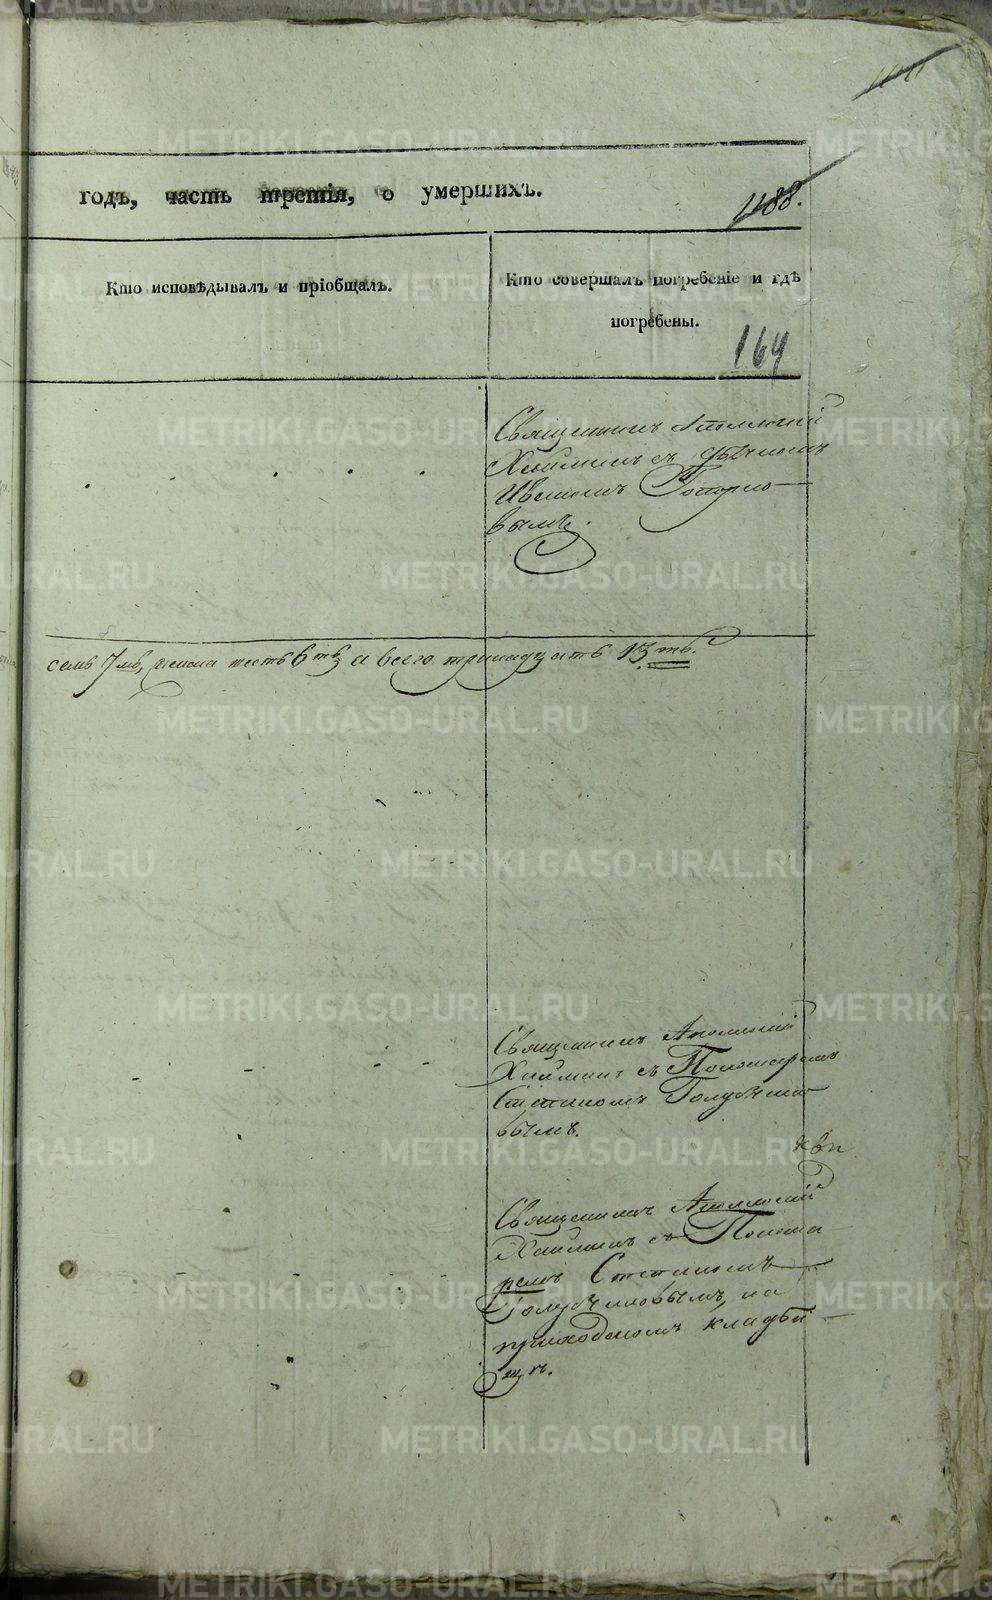 годъ, часть третія, о умершихъ.
1188.
Кто исповѣдывалъ и пріобщалъ.
Кто совершалъ погребеніе и гдѣ
погребены.
164
Священникъ Аполлоній
съ
Иваномъ
вымъ.
семь 7мь, женска шесть 6ть, а всего тринадцать 13ть.
Священникъ Аполлоній
съ Пономаремъ
Степаномъ Голубчико
вымъ.
Священникъ Аполлоній
съ Понома
ремъ Степаномъ
Голубчиковымъ, на
приходскомъ кладби
щѣ.
METRIKI.GASO-URAL.RU